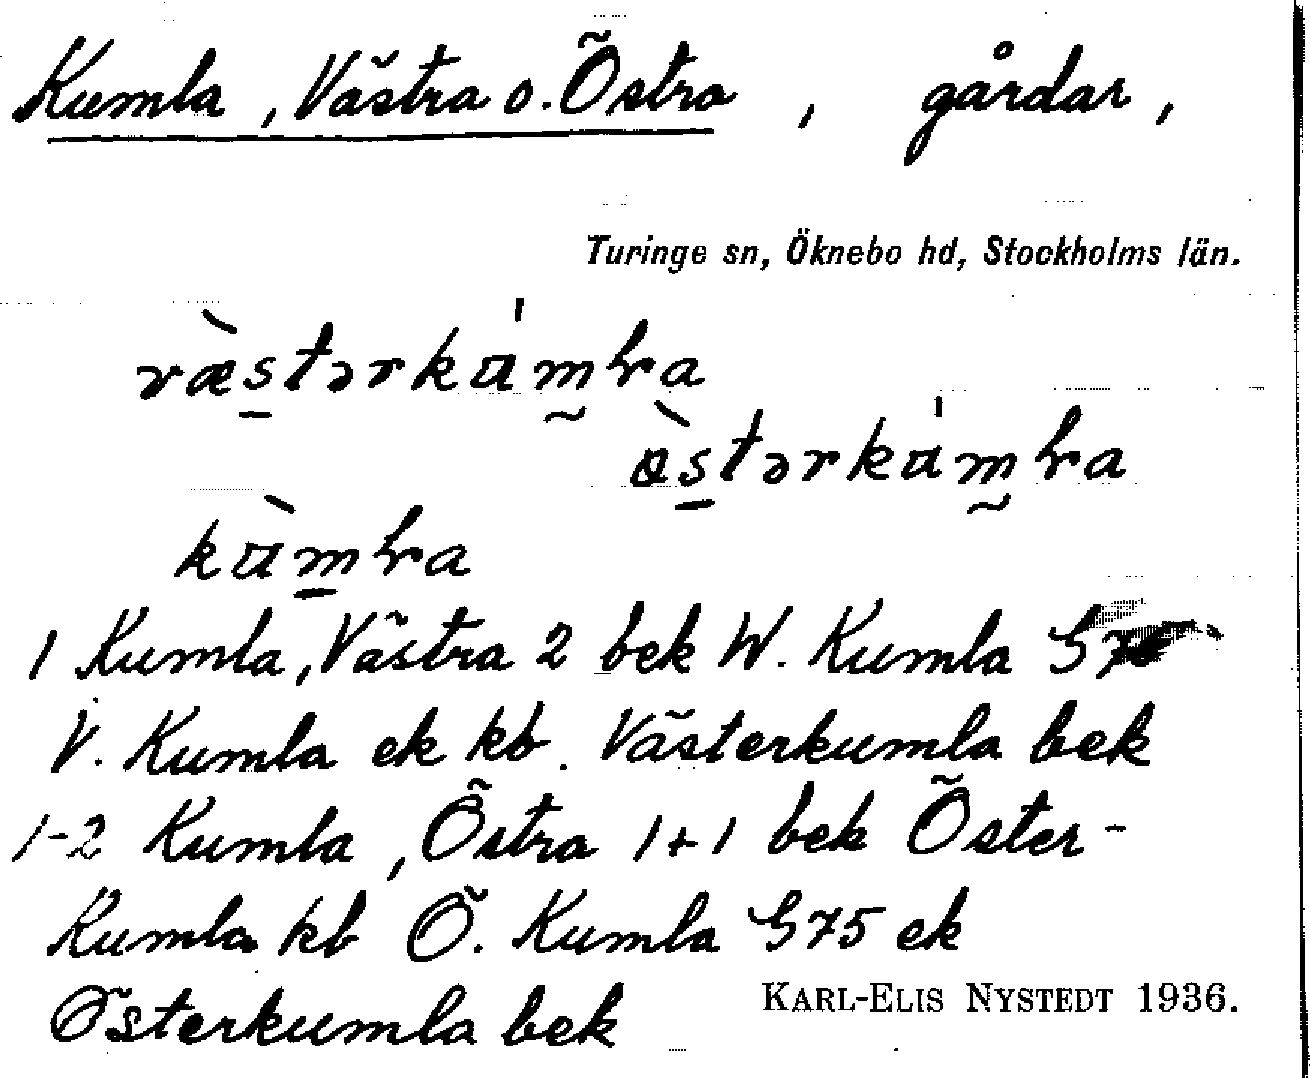 Kumla, Västra o. Östra, gårdar,
Turinge sn, Öknebo hd, Stockholms län.
1 Kumla, Västra 2 bek W. Kumla G
V. Kumla ek kb. Västerkumla bek
1-2 Kumla, Östra 1+1 bek Öster-
kumla kb Ö. Kumla G75 ek
Österkumla bek
KARL-ELIS NYSTEDT 1936.